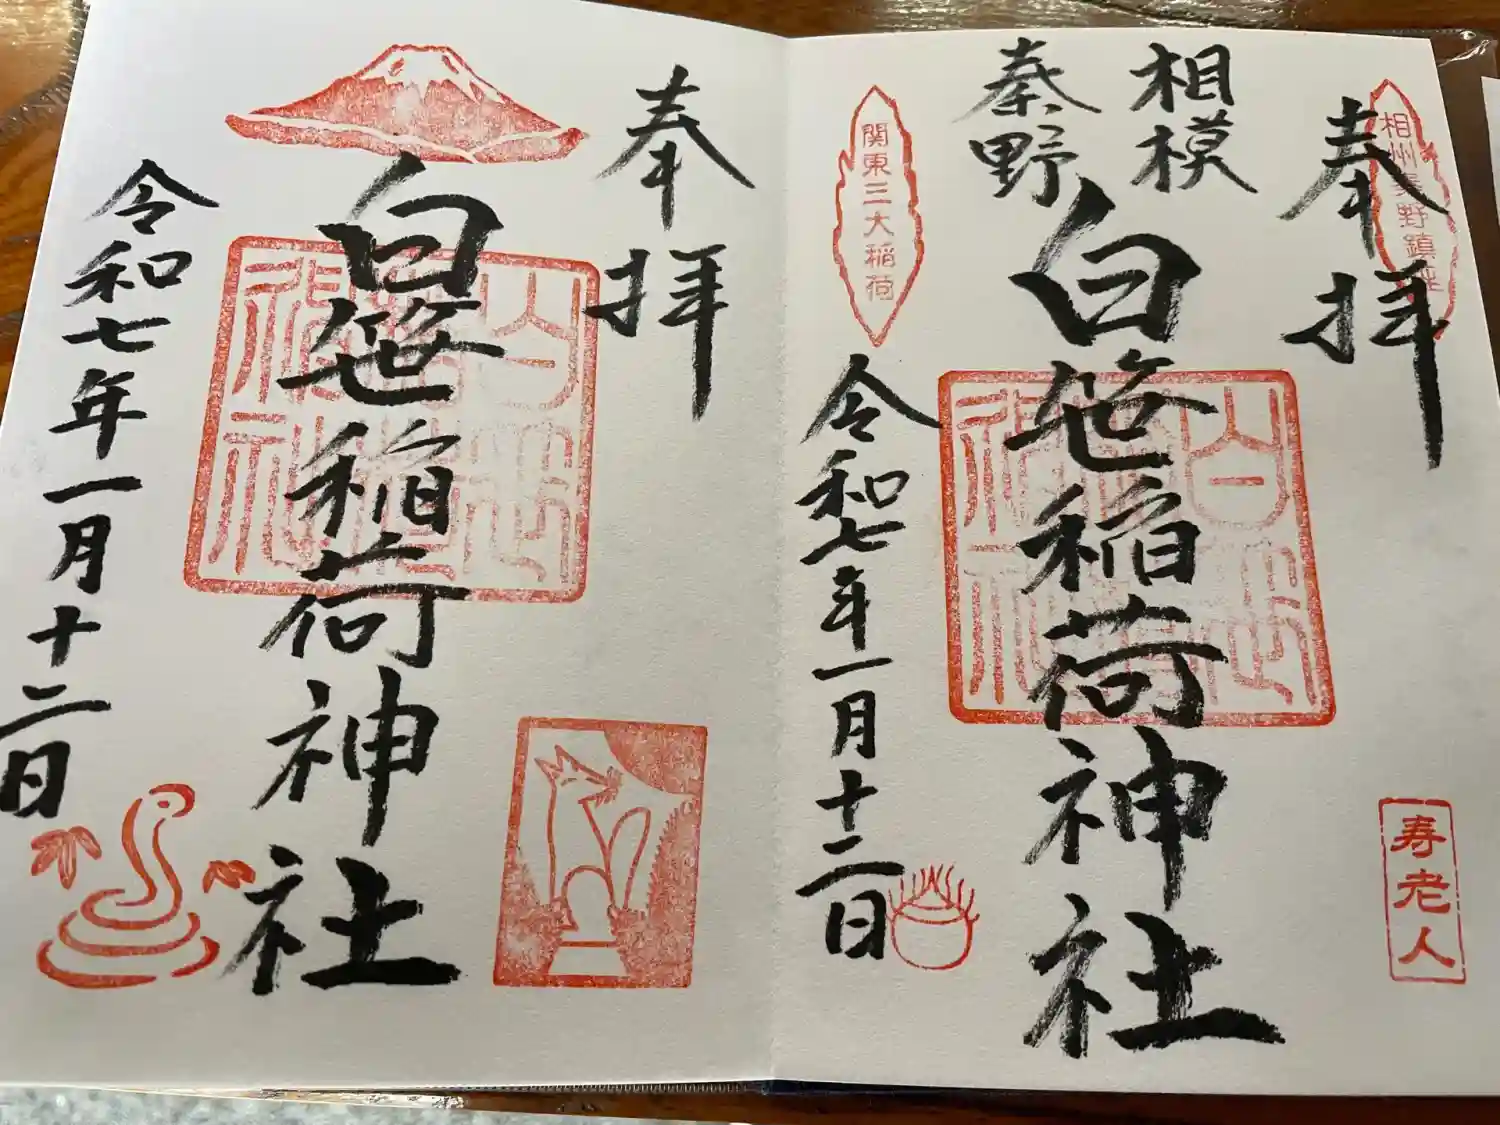 奉拝
相模
秦野
白笹稲荷神社
関東三大稲荷
令和七年一月十二日
相州秦野鎮座
寿老人
奉拝
白笹稲荷神社
令和七年一月十二日